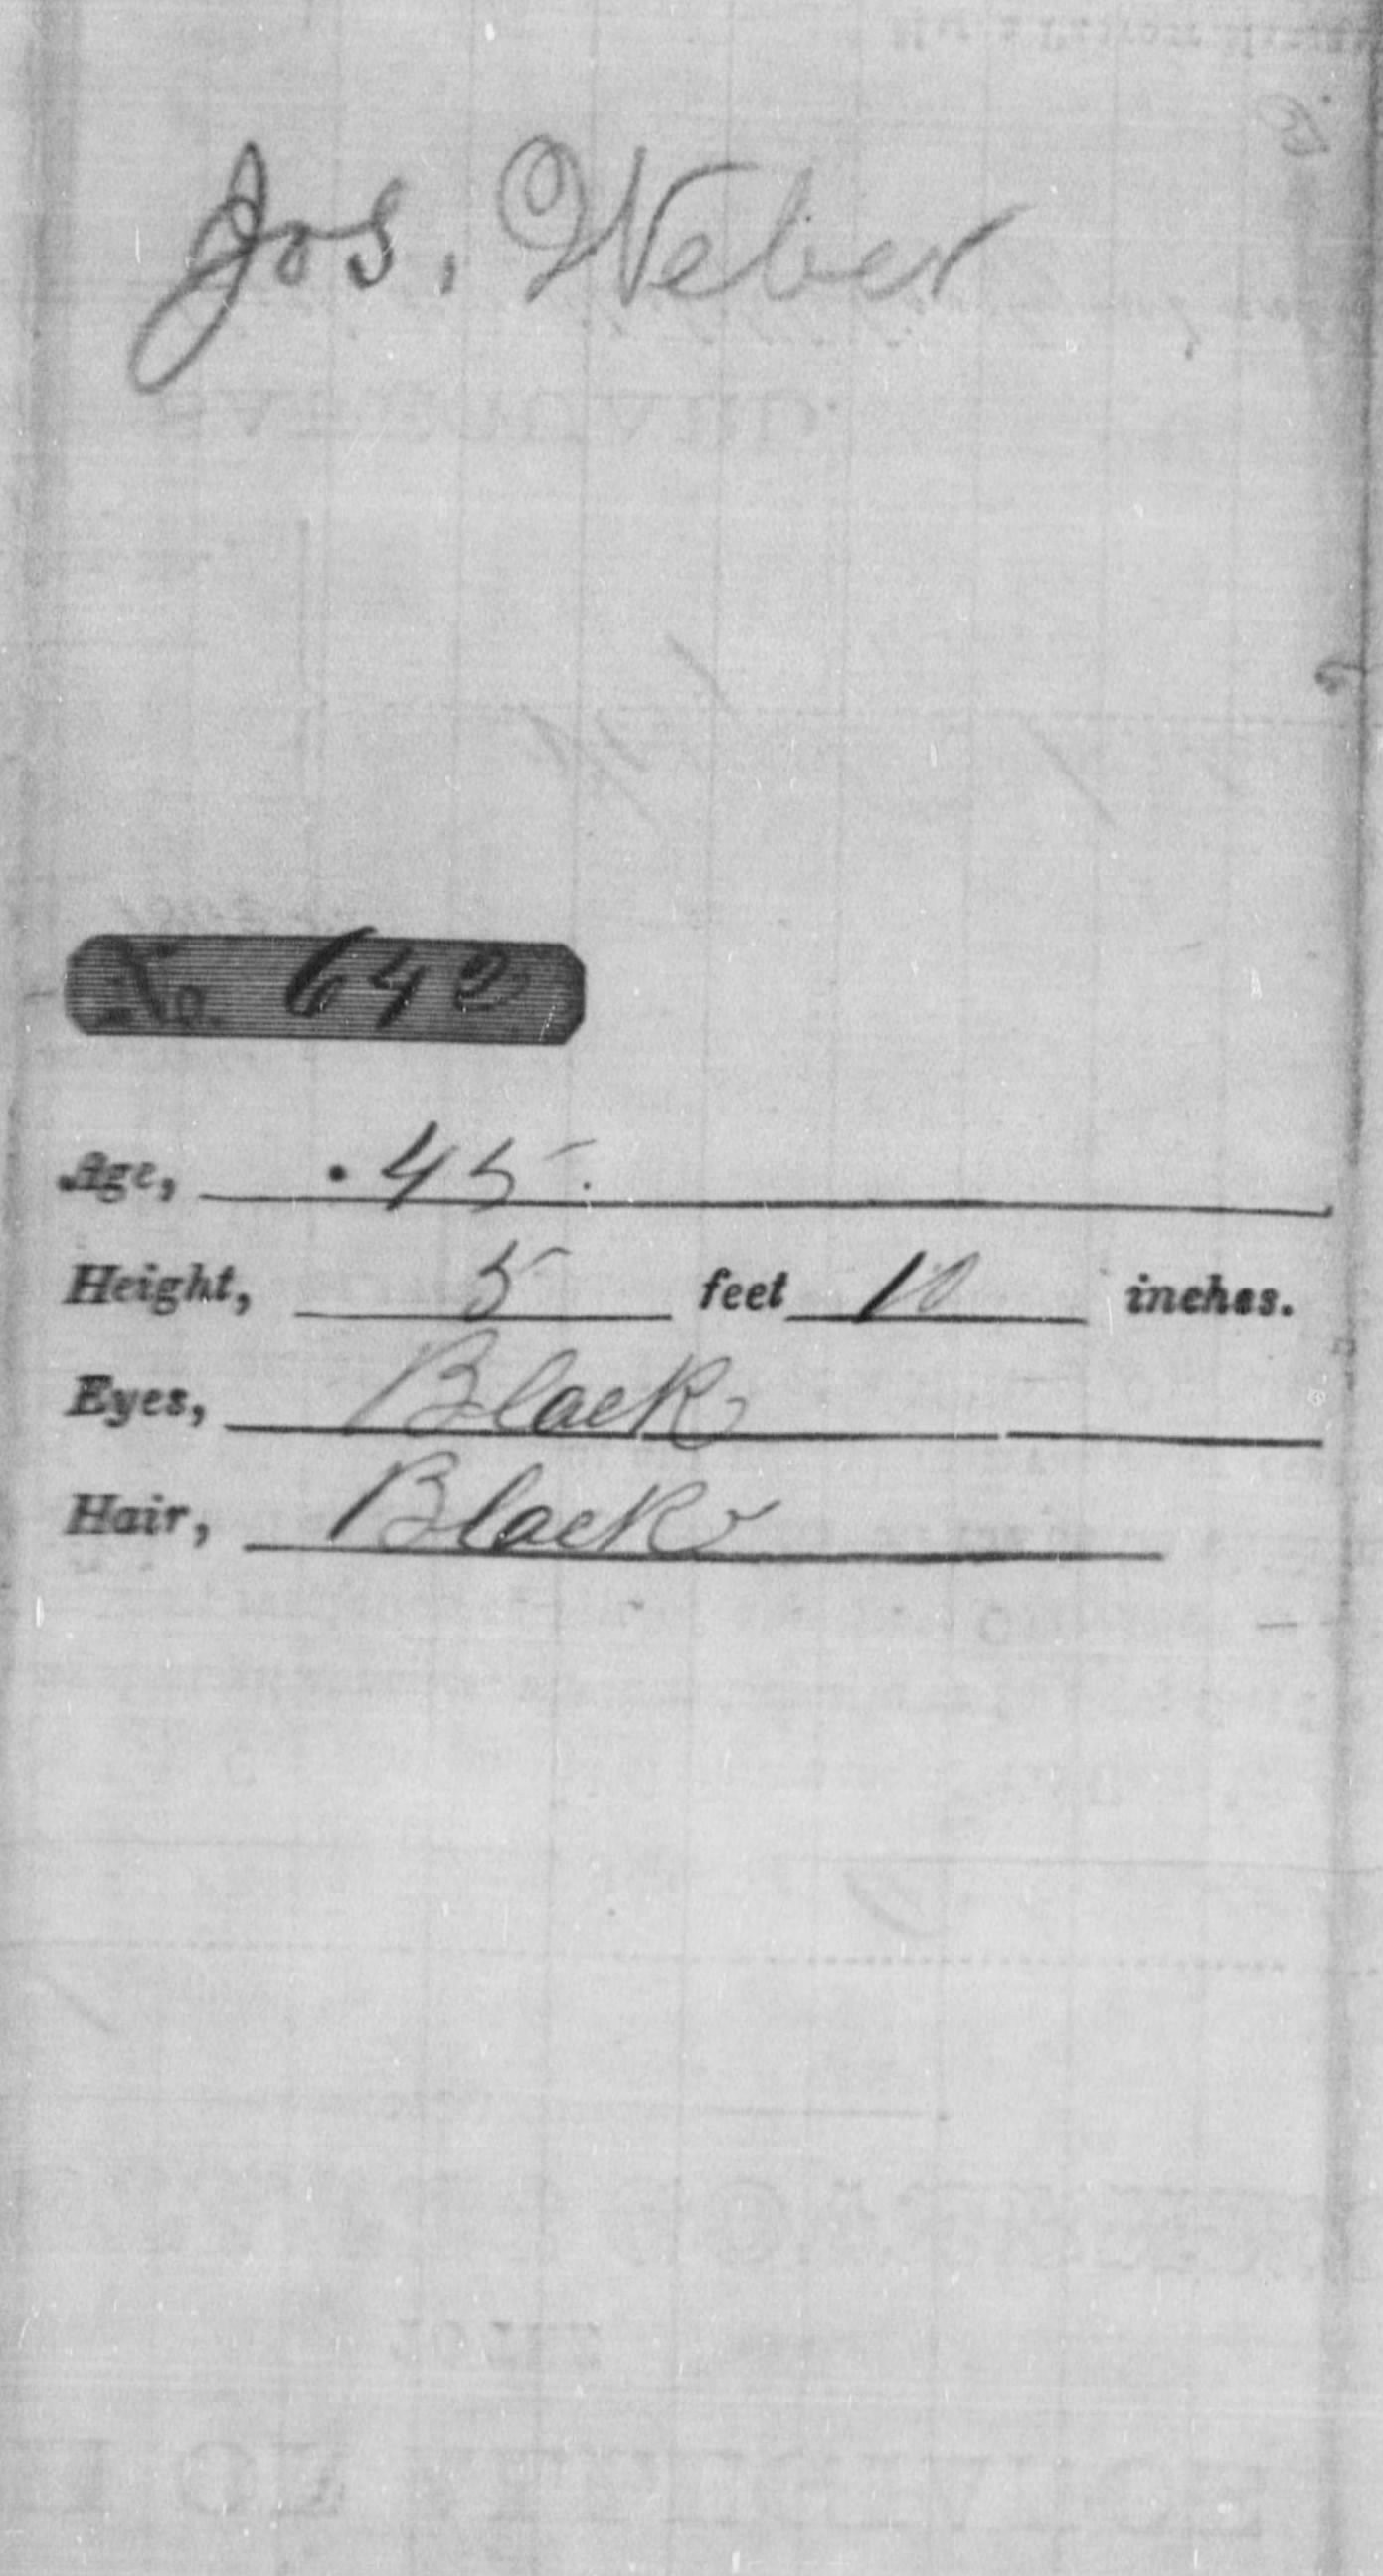 Jos. Weber
No. 642
Age, 45.
Height, 5 feet 10 inches.
Eyes, Black
Hair, Black